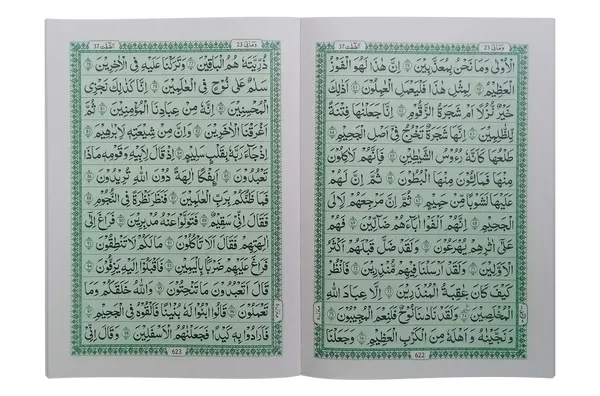 وَمَالِيَ 23
الصّٰٓفّٰت 37
الْاُوْلٰى وَمَا نَحْنُ بِمُعَذَّبِيْنَ ۝ اِنَّ هٰذَا لَهُوَ الْفَوْزُ
الْعَظِيْمُ ۝ لِمِثْلِ هٰذَا فَلْيَعْمَلِ الْعٰمِلُوْنَ ۝ اَذٰلِكَ
خَيْرٌ نُّزُلًا اَمْ شَجَرَةُ الزَّقُّوْمِ ۝ اِنَّا جَعَلْنٰهَا فِتْنَةً
لِّلظّٰلِمِيْنَ ۝ اِنَّهَا شَجَرَةٌ تَخْرُجُ فِيْٓ اَصْلِ الْجَحِيْمِ ۝
طَلْعُهَا كَاَنَّهٗ رُءُوْسُ الشَّيٰطِيْنِ ۝ فَاِنَّهُمْ لَاٰكِلُوْنَ
مِنْهَا فَمَالِـُٔوْنَ مِنْهَا الْبُطُوْنَ ۝ ثُمَّ اِنَّ لَهُمْ
عَلَيْهَا لَشَوْبًا مِّنْ حَمِيْمٍ ۝ ثُمَّ اِنَّ مَرْجِعَهُمْ لَا۟اِلَى
الْجَحِيْمِ ۝ اِنَّهُمْ اَلْفَوْا اٰبَآءَهُمْ ضَآلِّيْنَ ۝ فَهُمْ
عَلٰٓى اٰثٰرِهِمْ يُهْرَعُوْنَ ۝ وَلَقَدْ ضَلَّ قَبْلَهُمْ اَكْثَرُ
الْاَوَّلِيْنَ ۝ وَلَقَدْ اَرْسَلْنَا فِيْهِمْ مُّنْذِرِيْنَ ۝ فَانْظُرْ
كَيْفَ كَانَ عَاقِبَةُ الْمُنْذَرِيْنَ ۝ اِلَّا عِبَادَ اللّٰهِ
الْمُخْلَصِيْنَ ۝ وَلَقَدْ نَادٰىنَا نُوْحٌ فَلَنِعْمَ الْمُجِيْبُوْنَ ۝
وَنَجَّيْنٰهُ وَاَهْلَهٗ مِنَ الْكَرْبِ الْعَظِيْمِ ۝ وَجَعَلْنَا
622
وَمَالِيَ 23
الصّٰٓفّٰت 37
ذُرِّيَّتَهٗ هُمُ الْبٰقِيْنَ ۝ وَتَرَكْنَا عَلَيْهِ فِي الْاٰخِرِيْنَ ۝
سَلٰمٌ عَلٰى نُوْحٍ فِي الْعٰلَمِيْنَ ۝ اِنَّا كَذٰلِكَ نَجْزِي
الْمُحْسِنِيْنَ ۝ اِنَّهٗ مِنْ عِبَادِنَا الْمُؤْمِنِيْنَ ۝ ثُمَّ
اَغْرَقْنَا الْاٰخَرِيْنَ ۝ وَاِنَّ مِنْ شِيْعَتِهٖ لَاِبْرٰهِيْمَ ۝
اِذْ جَآءَ رَبَّهٗ بِقَلْبٍ سَلِيْمٍ ۝ اِذْ قَالَ لِاَبِيْهِ وَقَوْمِهٖ مَاذَا
تَعْبُدُوْنَ ۝ اَئِفْكًا اٰلِهَةً دُوْنَ اللّٰهِ تُرِيْدُوْنَ ۝
فَمَا ظَنُّكُمْ بِرَبِّ الْعٰلَمِيْنَ ۝ فَنَظَرَ نَظْرَةً فِي النُّجُوْمِ ۝
فَقَالَ اِنِّيْ سَقِيْمٌ ۝ فَتَوَلَّوْا عَنْهُ مُدْبِرِيْنَ ۝ فَرَاغَ اِلٰٓى
اٰلِهَتِهِمْ فَقَالَ اَلَا تَاْكُلُوْنَ ۝ مَا لَكُمْ لَا تَنْطِقُوْنَ ۝
فَرَاغَ عَلَيْهِمْ ضَرْبًۢا بِالْيَمِيْنِ ۝ فَاَقْبَلُوْٓا اِلَيْهِ يَزِفُّوْنَ ۝
قَالَ اَتَعْبُدُوْنَ مَا تَنْحِتُوْنَ ۝ وَاللّٰهُ خَلَقَكُمْ وَمَا
تَعْمَلُوْنَ ۝ قَالُوا ابْنُوْا لَهٗ بُنْيَانًا فَاَلْقُوْهُ فِي الْجَحِيْمِ ۝
فَاَرَادُوْا بِهٖ كَيْدًا فَجَعَلْنٰهُمُ الْاَسْفَلِيْنَ ۝ وَقَالَ اِنِّيْ
623